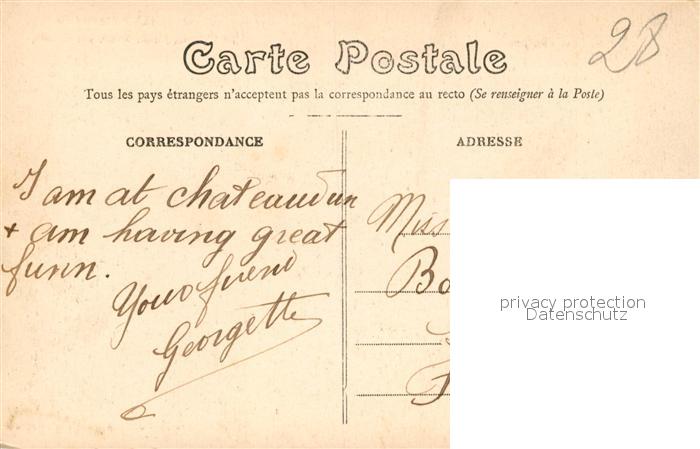 28
Carte Postale
Tous les pays étrangers n'acceptent pas la correspondance au recto (Se renseigner à la Poste)
CORRESPONDANCE
ADRESSE
I am at chateaudun
+ am having great
funn.
Your friend
Georgette
Miss
privacy protection
Datenschutz